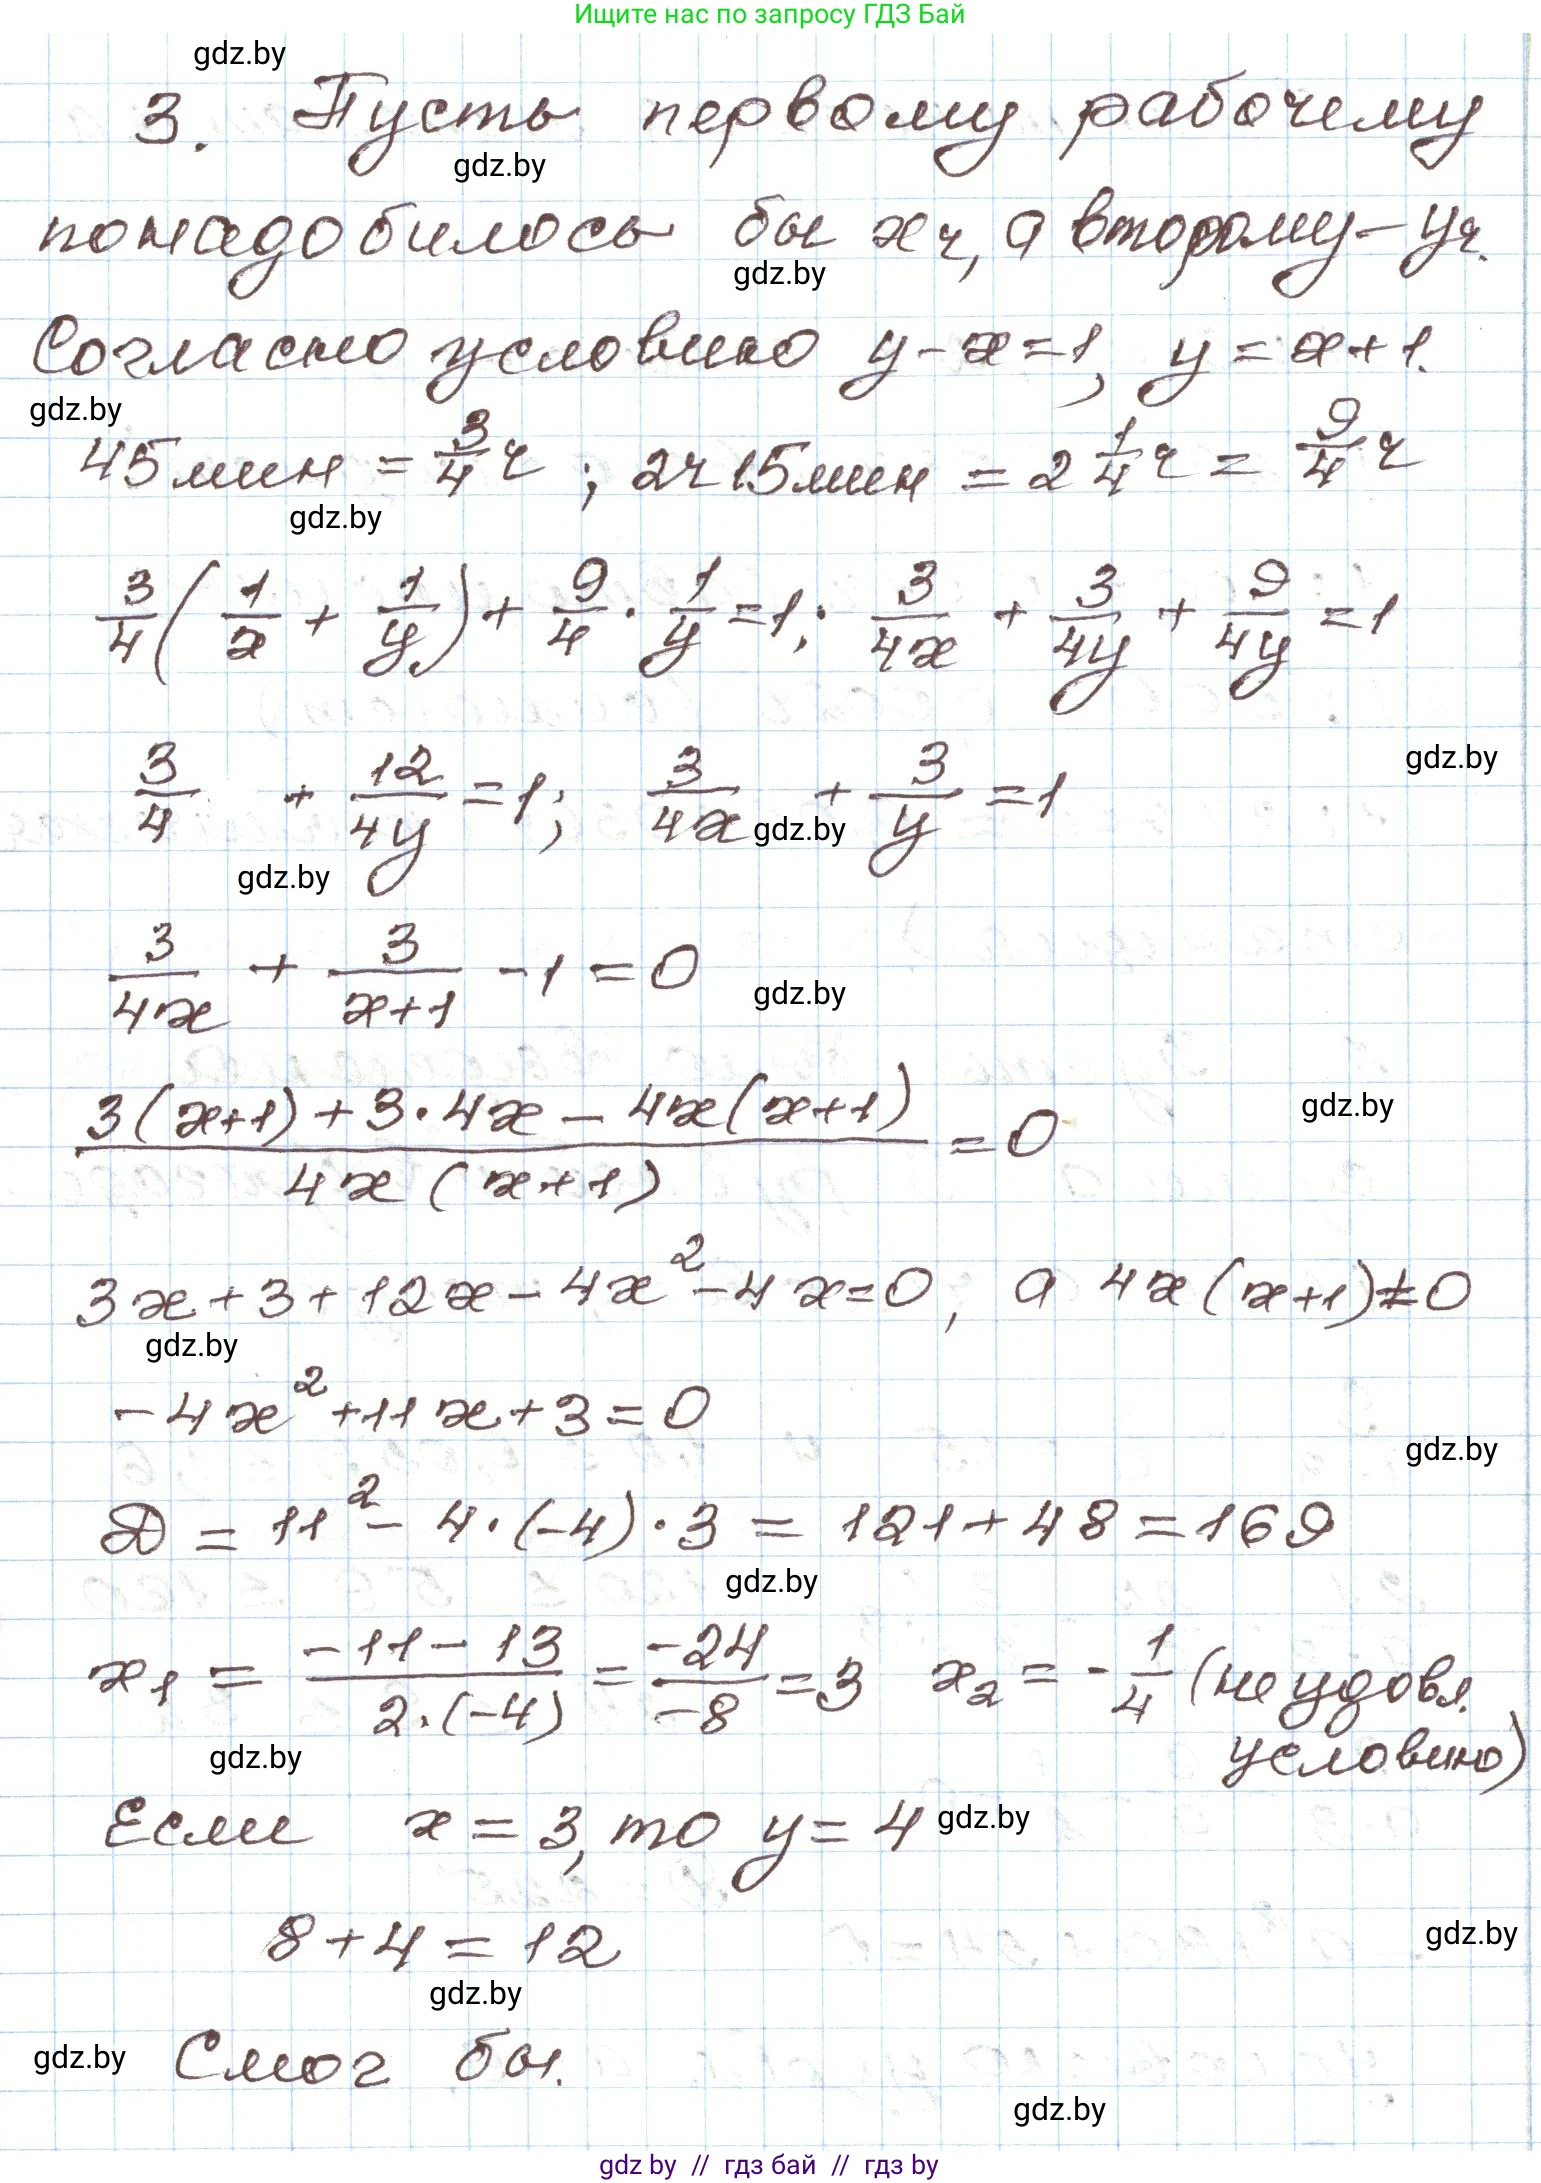 Ищите нас по запросу ГДЗ Бай
gdz.by
3. Пусть первому рабочему
gdz.by
понадобилось бы x ч, а второму – y ч.
gdz.by
Согласно условию y – x = 1, y = x + 1.
gdz.by
45 мин = 3/4 ч ; 2 ч 15 мин = 2 1/4 ч = 9/4 ч
gdz.by
3/4 (1/x + 1/y) + 9/4 · 1/y = 1; 3/4x + 3/4y + 9/4y = 1
gdz.by
3/4 + 12/4y = 1; 3/4x + 3/y = 1
gdz.by
gdz.by
3/4x + 3/(x+1) – 1 = 0
gdz.by
(3(x+1) + 3 · 4x – 4x(x+1))/(4x(x+1)) = 0
gdz.by
3x + 3 + 12x – 4x² – 4x = 0, а 4x(x+1) ≠ 0
gdz.by
–4x² + 11x + 3 = 0
gdz.by
D = 11² – 4 · (–4) · 3 = 121 + 48 = 169
gdz.by
x₁ = (–11 – 13)/(2 · (–4)) = –24/–8 = 3 x₂ = – 1/4 (не удовл.
условию)
gdz.by
Если x = 3, то y = 4
gdz.by
8 + 4 = 12
gdz.by
gdz.by
Смог бы.
gdz.by
gdz.by
gdz by // гдз бай // гдз by